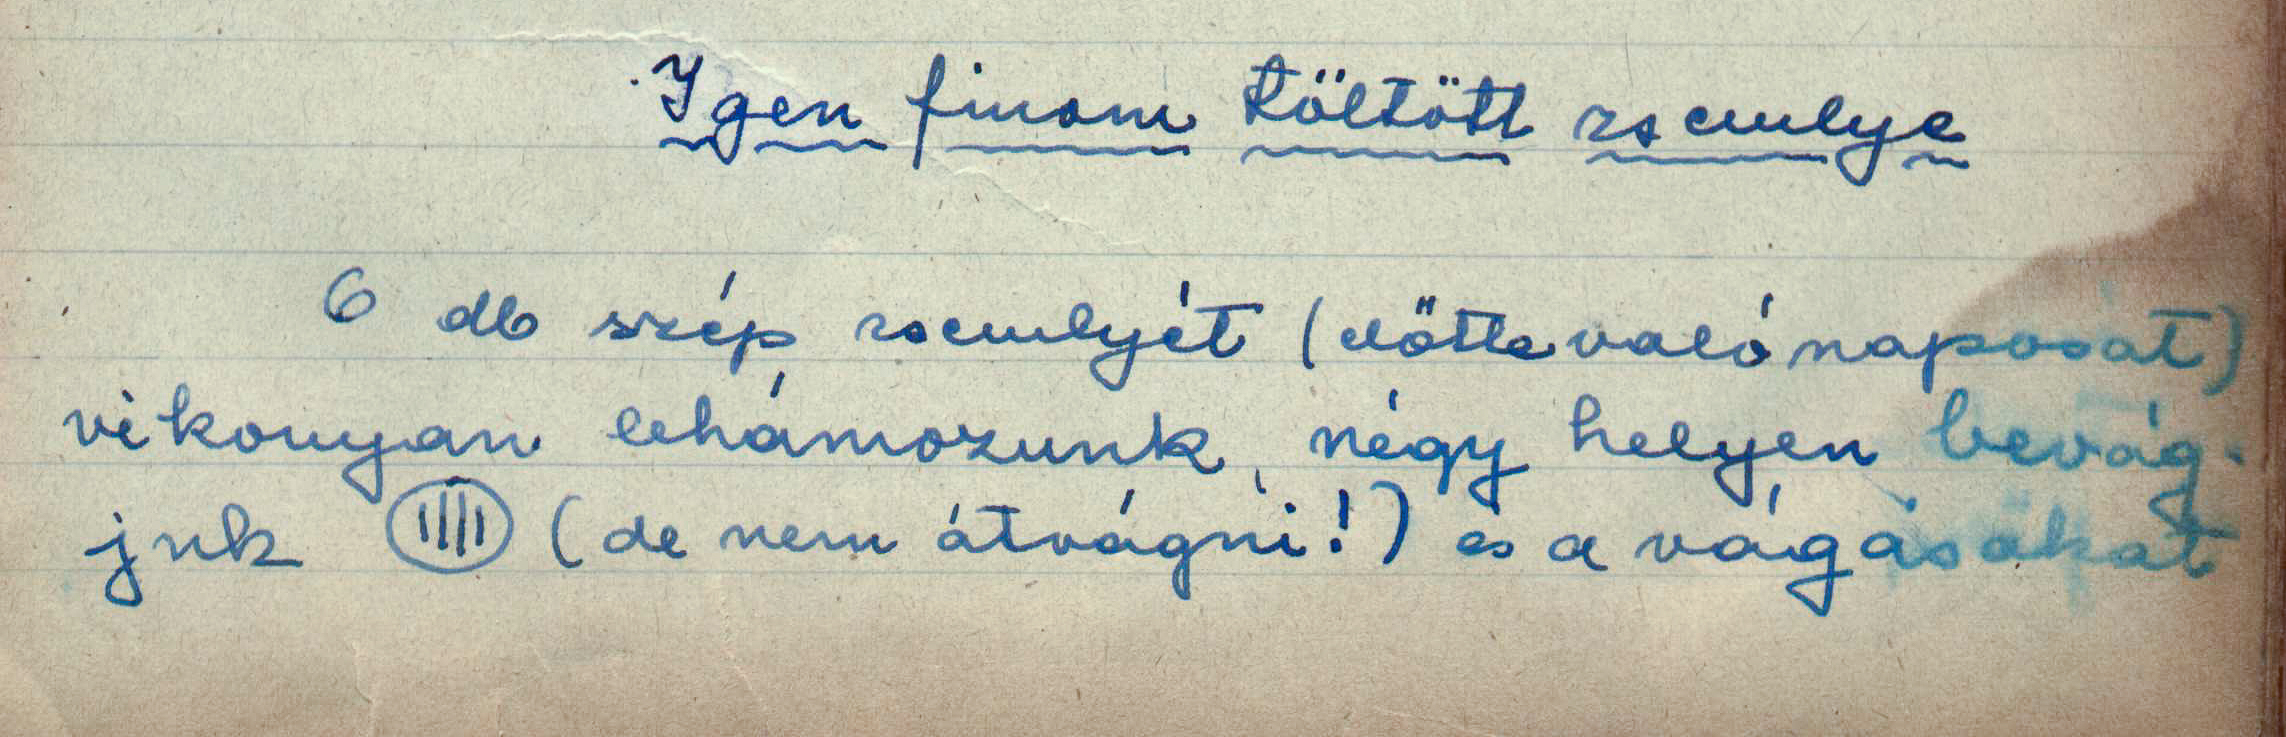 Igen finom töltött zsemlye
6 db szép zsemlyét (előttevaló naposat)
vékonyan lehámozunk, négy helyen bevág-
juk (de nem átvágni!) és a vágásokat